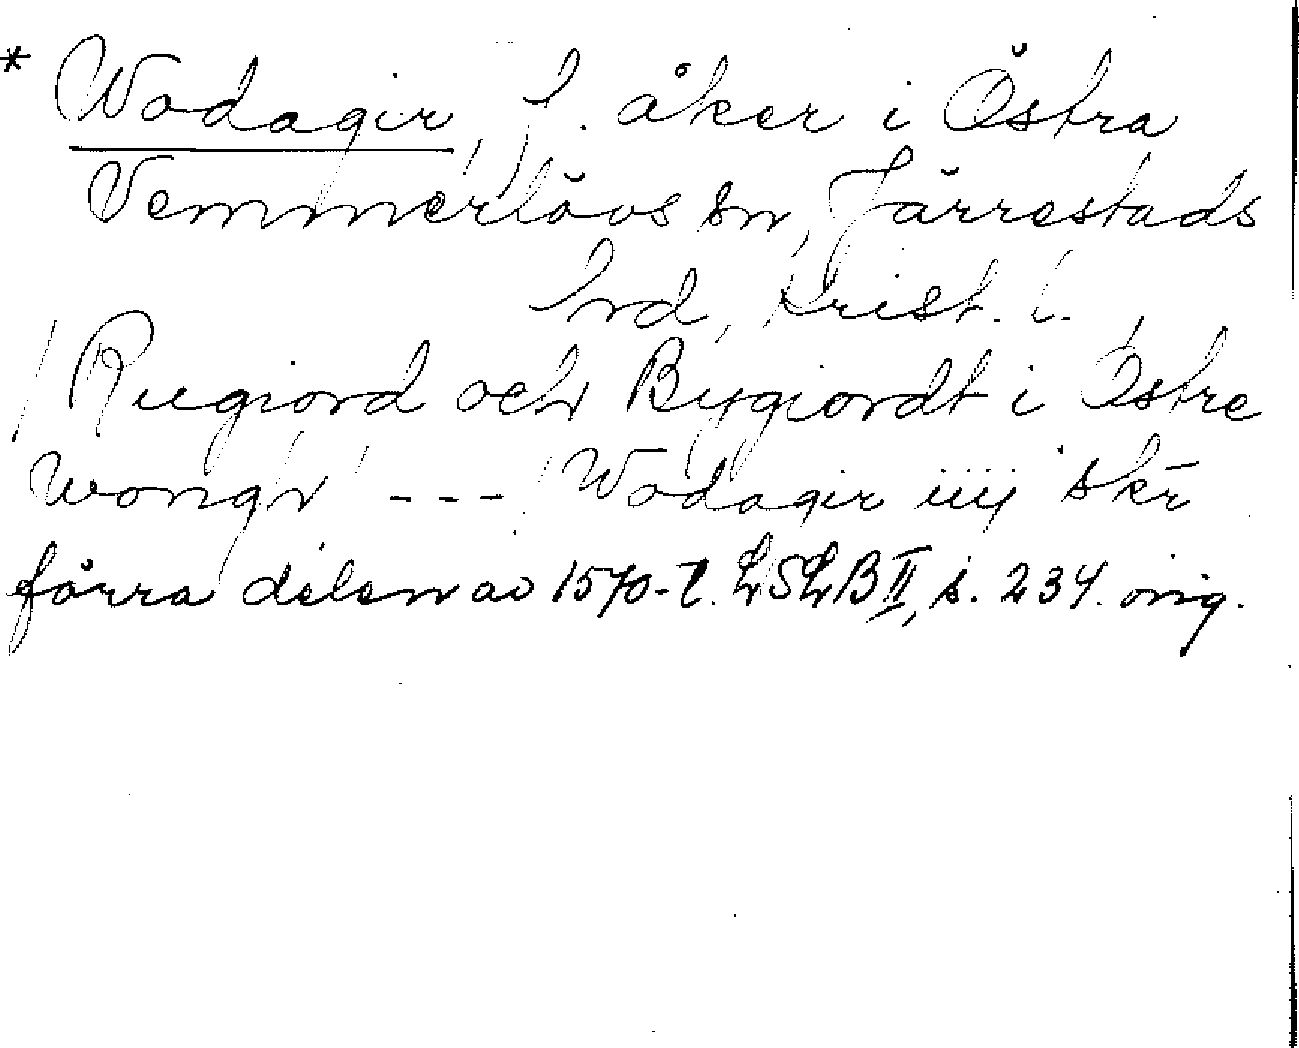 * Wodagir, f. åker i Östra
Vemmerlövs sn, Järrestads
hrd, Krist. l.
/Rugiord och Bygiordt i Östre
wongh --- Wodagir iiij skr
förra delen av 1570-t. LSLB II, s. 234. orig.